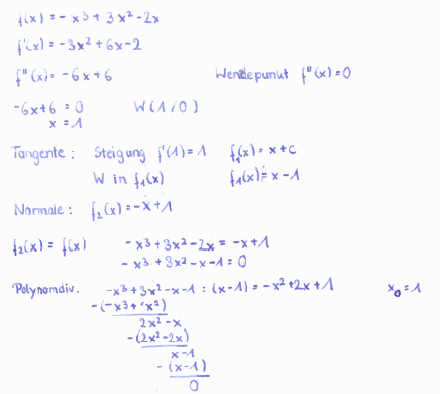 f(x) = -x³ + 3x² - 2x
f'(x) = -3x² + 6x - 2
f''(x) = -6x + 6 Wendepunkt f''(x) = 0
-6x + 6 = 0 W(1/0)
x = 1
Tangente: Steigung f'(1) = 1 f₁(x) = x + c
W in f₁(x) f₁(x) = x - 1
Normale: f₂(x) = -x + 1
f₂(x) = f(x) -x³ + 3x² - 2x = -x + 1
-x³ + 3x² - x - 1 = 0
Polynomdiv. -x³ + 3x² - x - 1 : (x - 1) = -x² + 2x + 1 x₀ = 1
-(-x³ + x²)
2x² - x
-(2x² - 2x)
x - 1
-(x - 1)
0